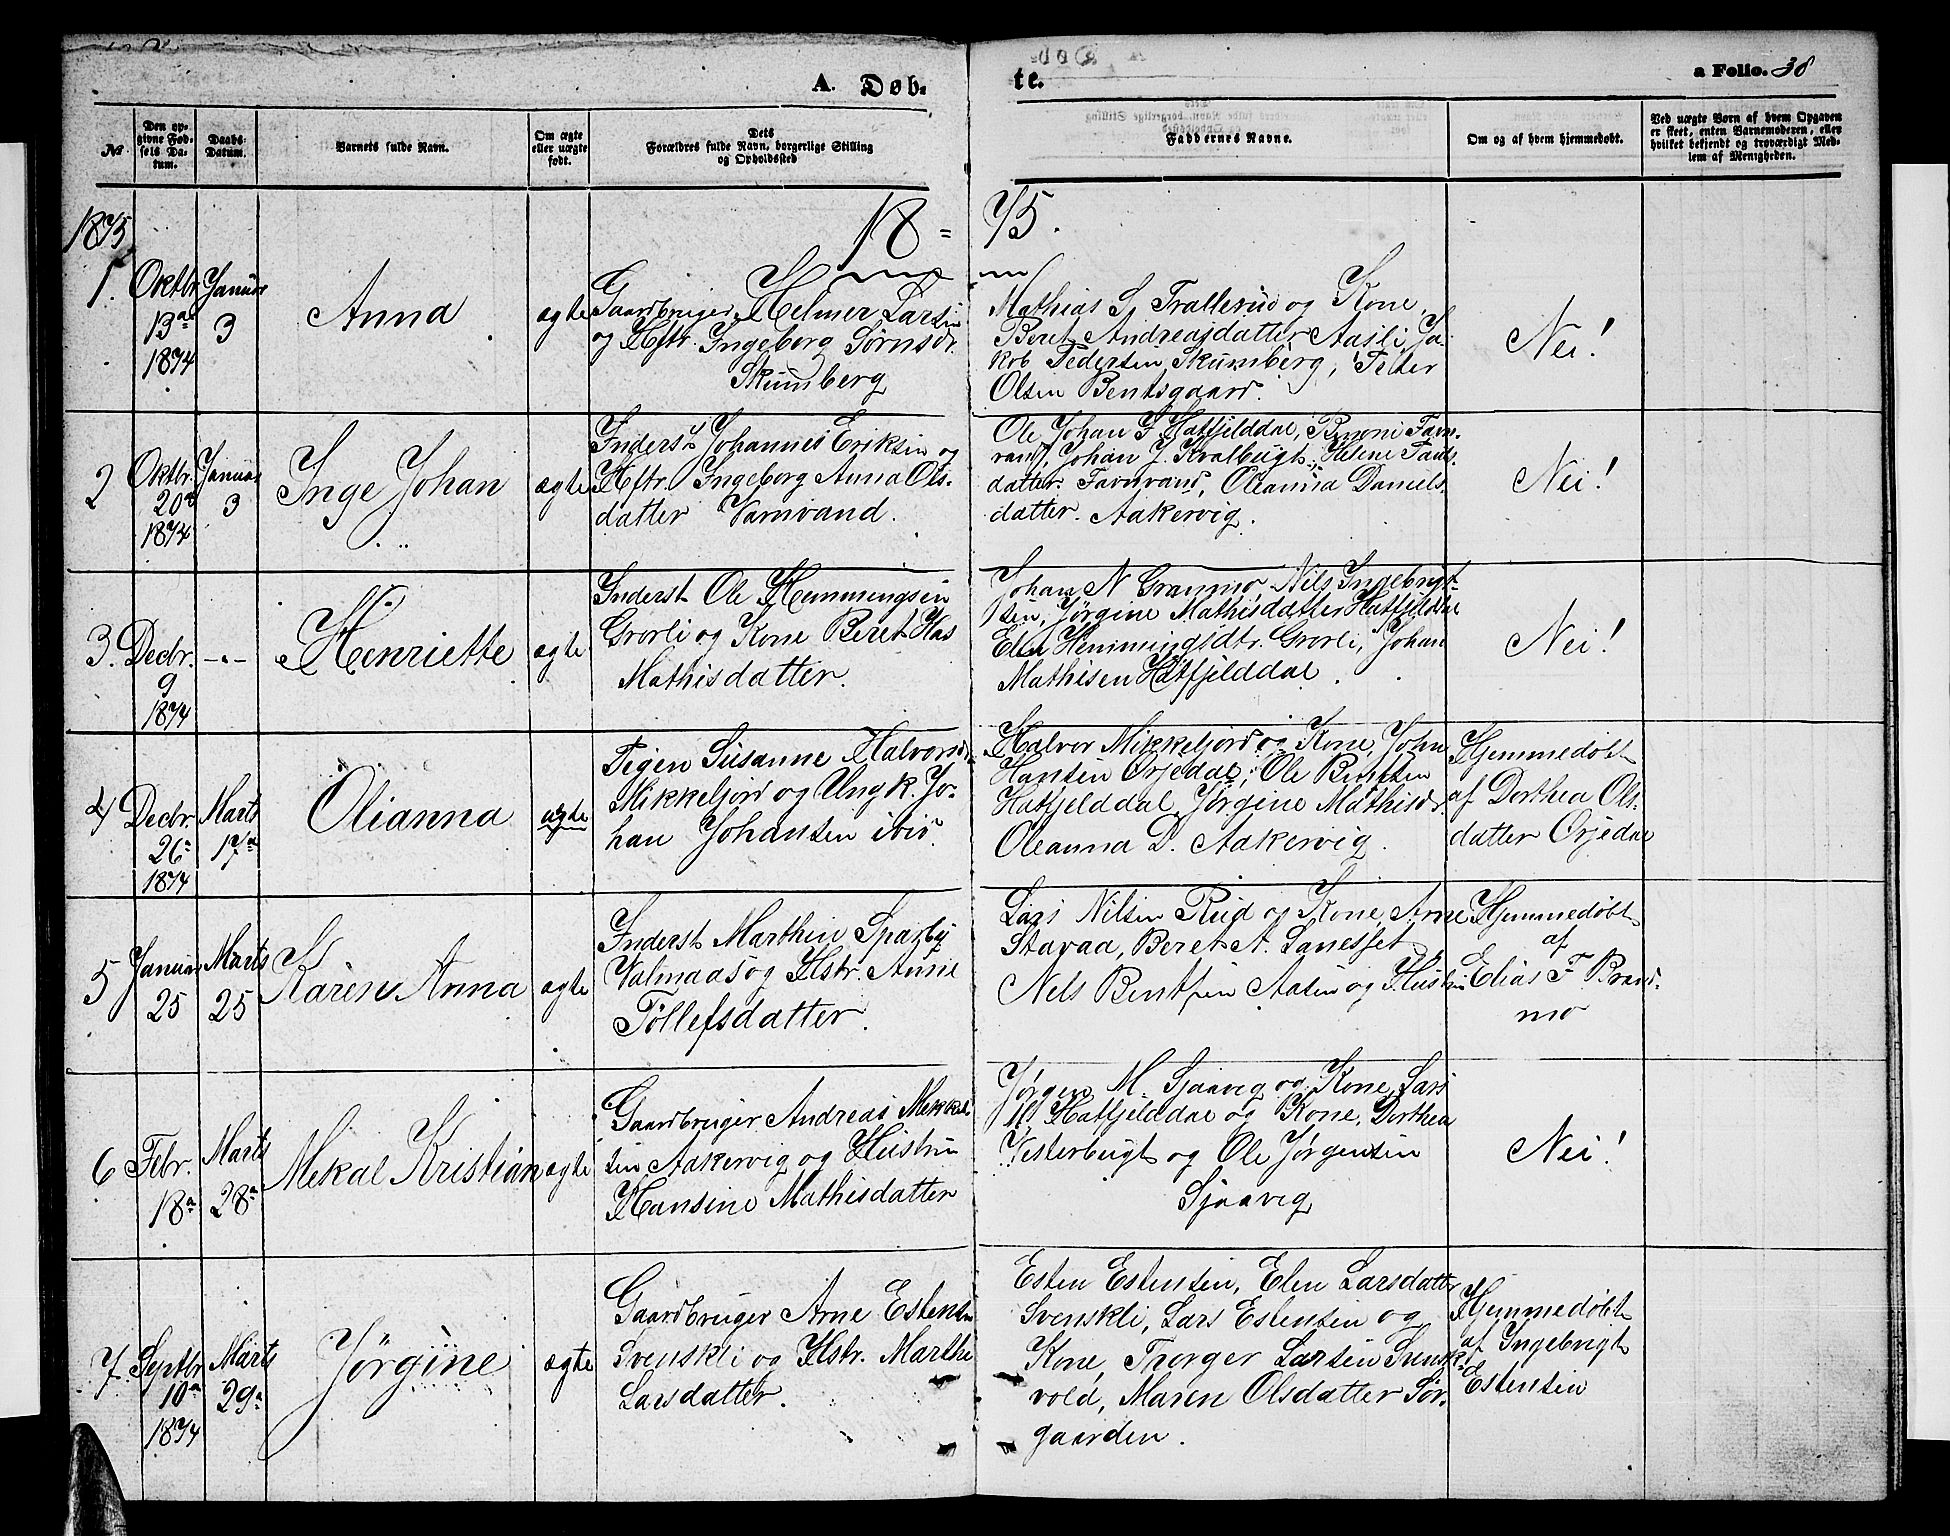 A. Døb-
te.
a Folio. 38
No.
Den op-
givne Fød-
sels Da-
tum.
Daabs-
Datum.
Barnets fulde Navn.
Om ægte
eller uægte
født.
Dets
Forældres fulde Navn, borgerlige Stilling
og Opholdssted
Faddernes Navne.
Om og af hvem hjemmedøbt.
Ved uægte Børn af hvem Opgaven
er skeet, enten Barnemoderen, eller
hvilket bekjendt og troværdigt Med-
lem af Menigheden.
1875
18 = 75.
1.
Oktbr
13de
1874
Januar
3
Anna
ægte
Gaardbruger Helmer Larsen
og Hstr. Ingeborg Sørnsdr.
Skumberg
Mathias S. Trallerud og Kone,
Beret Andreasdatter Aasli, Ja-
kob Pedersen Skumberg, Peter
Olsen Bentsgaard.
Nei!
2
Oktbr.
20de
1874
Januar
3
Inge Johan
ægte
Inderst Johannes Eriksen og
Hstr. Ingeborg Anna Ols-
datter Varnvand.
Ole Johan Hatfjelddal, Favn-
vand, Johan J. Kvalbugt, Helene Pauls-
datter Favnvand, Oleanna Daniels-
datter Aakervig.
Nei!
3.
Decbr.
9
1874
-„-
Henriette
ægte
Inderst Ole Hemmingsen
Grorli og Kone Beret
Mathisdatter.
Johan N Granmo, Nils Ingebrigt-
sen, Jørgine Mathisdatter Hatfjelddal
Elen Hemmingsdtr. Grorli, Johan
Mathisen Hatfjelddal.
Nei!
4
Decbr.
26
1874
Marts
17de
Olianna
uægte
Pigen Susanne Halvorsdr.
Mikkeljord og Ungk. Jo-
han Johansen ibid.
Halvor Mikkeljord og Kone, John
Hansen Ørjedal, Ole Bentsen
Hatfjelddal, Jørgine Mathisdr.
Oleanna D. Aakervig.
Hjemmedøbt
af Dorthea Ols-
datter Ørjedal
5
Januar
25
Marts
25
Karen Anna
ægte
Inderst Marthin Sparby
Valmaas og Hstr. Anne
Tøllefsdatter.
Lars Nilsen Rud og Kone, Arne
Stavaa, Beret A. Lanesset
Nels Bentsen Aasen og Hustru
Hjemmedøbt
af
Elias F Brand-
mo
6
Febr.
18de
Marts
28de
Mekal Kristian
ægte
Gaardbruger Andreas Mekkel-
sen Aakervig og Hustru
Hansine Mathisdatter
Jørgen M. Sjaavig og Kone, Lars
M Hatfjelddal og Kone, Dorthea
Vesterbugt og Ole Jørgensen
Sjaavig
Nei!
7
Septbr
10de
1874
Marts
29de
Jørgine
ægte
Gaardbruger Arne Estensen
Svenskli og Hstr. Marthe
Larsdatter.
Esten Estensen, Elen Larsdatter
Svenskli, Lars Estensen og
Kone, Thorger Larsen Svensk-
vold, Maren Olsdatter Sør-
gaarden.
Hjemmedøbt
af Ingebrigt
Estensen